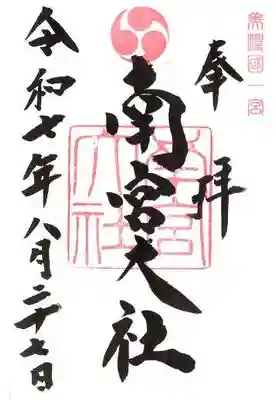 美濃國一宮
奉拝
南宮大社
南宮大社
令和七年八月二十七日